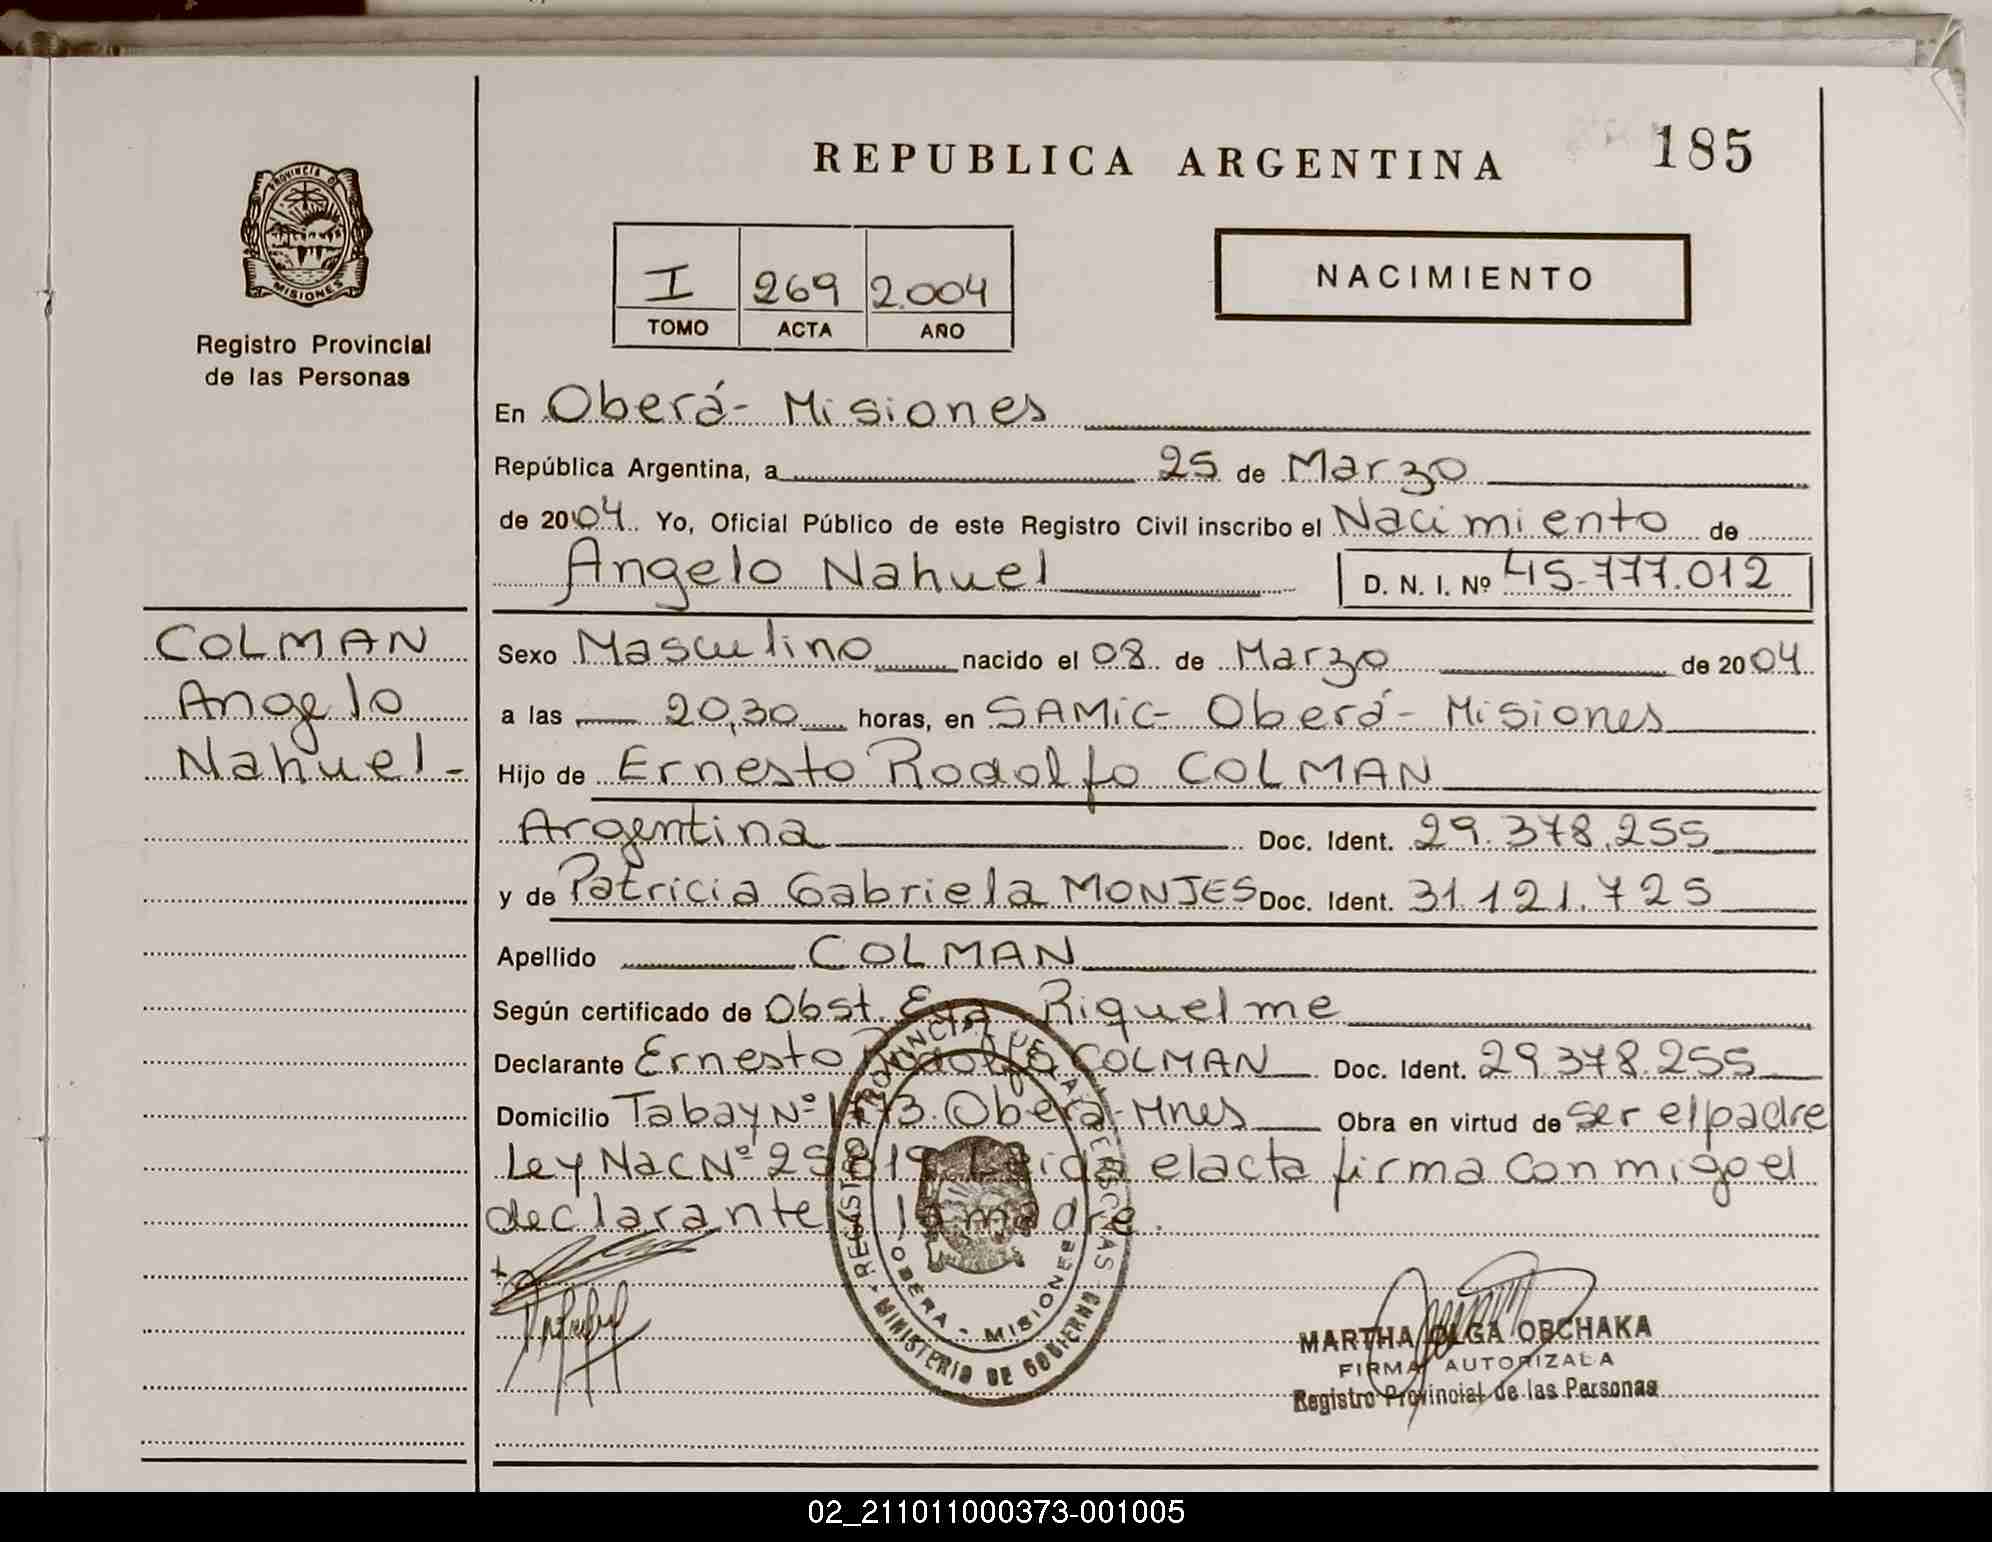 REPUBLICA ARGENTINA
185
PROVINCIA DE
MISIONES
Registro Provincial
de las Personas
I 269 2.004
TOMO ACTA AÑO
NACIMIENTO
En Oberá - Misiones
República Argentina, a 25 de Marzo
de 2004 Yo, Oficial Público de este Registro Civil inscribo el Nacimiento de
Angelo Nahuel D. N. I. Nº 45.777.012
COLMAN
Angelo
Nahuel-
Sexo Masculino nacido el 08 de Marzo de 2004
a las 20,30 horas, en SAMIC- Oberá - Misiones
Hijo de Ernesto Rodolfo COLMAN
Argentina Doc. Ident. 29.378.255
y de Patricia Gabriela MONJES Doc. Ident. 31.121.725
Apellido COLMAN
Según certificado de Obst. Eva Riquelme
Declarante Ernesto Rodolfo COLMAN Doc. Ident. 29.378.255
Domicilio Tabay Nº 3. Oberá - Mnes Obra en virtud de ser el padre
Ley Nac Nº Leída el acta firma conmigo el
declarante la madre.
REGISTRO PROVINCIAL DE LAS PERSONAS
OBERA - MISIONES
MINISTERIO DE GOBIERNO
MARTHA OLGA OBCHAKA
FIRMA AUTORIZADA
Registro Provincial de las Personas
02_211011000373-001005